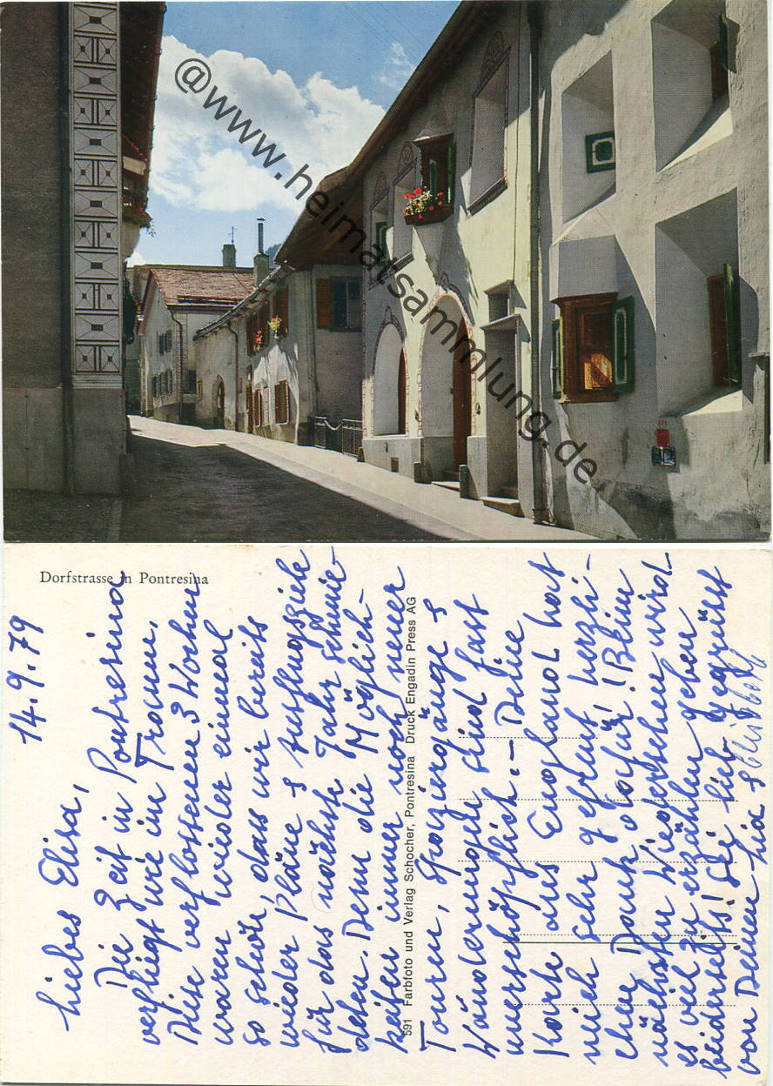 @www.heimatsammlung.de
Dorfstrasse in Pontresina
14.9.79
Liebes Elisa,
Die Zeit in Pontresina
verfliegt wie im Traum.
Diese verflossenen 3 Wochen
waren wieder einmal
so schön, dass wir bereits
wieder Pläne & Ausflugsziele
für das nächste Jahr schmie-
deten. Denn die Möglich-
keiten immer noch neuer
Touren, Spaziergänge &
Wanderungen sind fast
unerschöpflich. – Deine
Karte aus England hat
mich sehr gefreut herzli-
chen Dank dafür! Beim
nächsten Wiedersehen wird
es viel zu erzählen geben
beiderseits! Sei lieb gegrüsst
von Deinen Pia &
591 Farbfoto und Verlag Schocher, Pontresina Druck Engadin Press AG